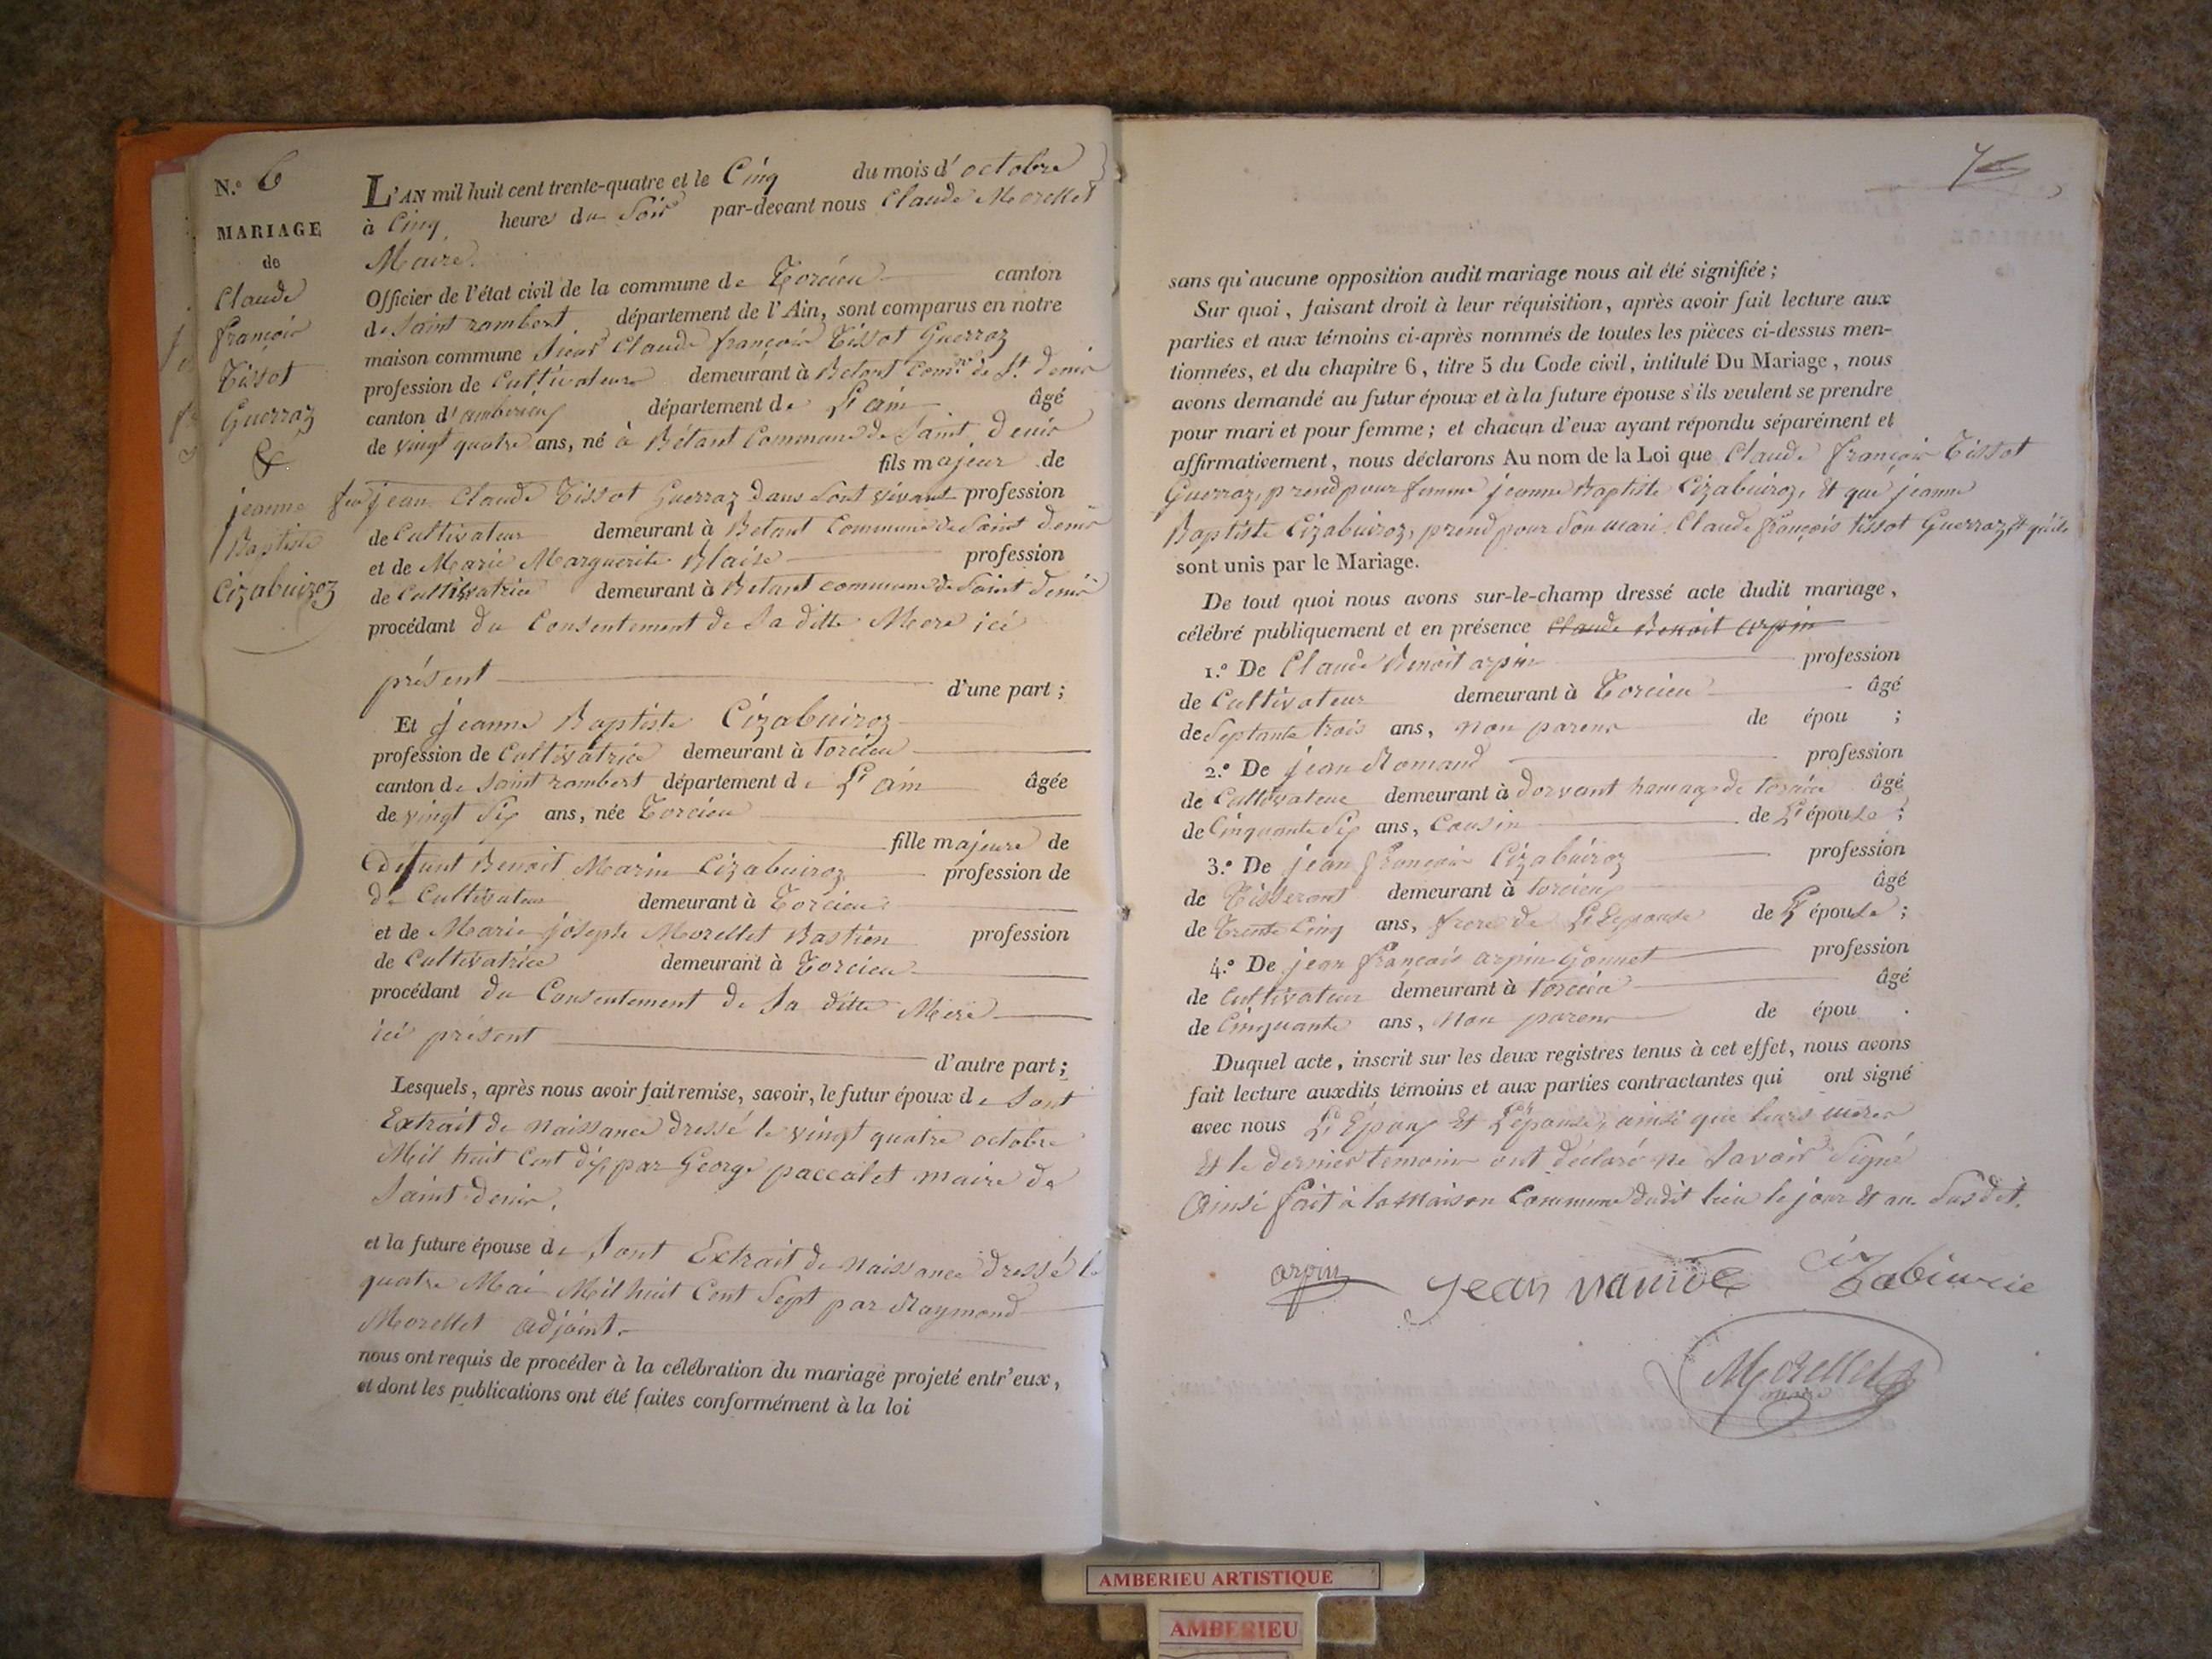 N.o 6
MARIAGE
de
Claude
françois
Tissot
Guerraz
&
jeanne
Baptiste
Cizabuiroz
L'AN mil huit cent trente-quatre et le Cinq du mois d'octobre
à Cinq heures du Soir par-devant nous Claude Morellet
Maire
Officier de l'état civil de la commune de Torcieu canton
de Saint rambert département de l'Ain, sont comparus en notre
maison commune Sieur Claude françois Tissot Guerraz
profession de Cultivateur demeurant à Betant Com.ne de St. denis
canton d'ambérieux département de L'ain âgé
de vingt quatre ans, né à Bétant Commune de Saint denis
fils majeur de
feu jean Claude Tissot Guerraz dans Sont vivant profession
de Cultivateur demeurant à Betant Commune de Saint denis
et de Marie Marguerite Blaise profession
de Cultivatrice demeurant à Betant commune de Saint denis
procédant du Consentement de Sa ditte Mere ici
présent d'une part ;
Et jeanne Baptiste Cizabuiroz
profession de Cultivatrice demeurant à torcieu
canton de Saint rambert département de L'ain âgée
de vingt Six ans, née Torcieu
fille majeure de
Défunt Benoit Marin Cizabuiroz profession de
de Cultivateur demeurant à Torcieu
et de Marie joseph Morellet Bastien profession
de Cultivatrice demeurant à Torcieu
procédant du Consentement de Sa ditte Mere
ici présent
d'autre part ;
Lesquels, après nous avoir fait remise, savoir, le futur époux de Sont
Extrait de naissance dressé le vingt quatre octobre
Mil huit Cent dix par George paccalet maire de
Saint denis.
et la future épouse de Sont Extrait de naissance dressé le
quatre Mai Mil huit Cent Sept par Raymond
Morellet adjoint.
nous ont requis de procéder à la célébration du mariage projeté entr'eux,
et dont les publications ont été faites conformément à la loi
7
sans qu'aucune opposition audit mariage nous ait été signifiée ;
Sur quoi, faisant droit à leur réquisition, après avoir fait lecture aux
parties et aux témoins ci-après nommés de toutes les pièces ci-dessus men-
tionnées, et du chapitre 6, titre 5 du Code civil, intitulé Du Mariage, nous
avons demandé au futur époux et à la future épouse s'ils veulent se prendre
pour mari et pour femme ; et chacun d'eux ayant répondu séparément et
affirmativement, nous déclarons Au nom de la Loi que Claude françois Tissot
Guerraz, prend pour femme jeanne Baptiste Cizabuiroz, Et que jeanne
Baptiste Cizabuiroz, prend pour Son mari Claude françois tissot Guerraz, Et qu'ils
sont unis par le Mariage.
De tout quoi nous avons sur-le-champ dressé acte dudit mariage,
célébré publiquement et en présence Claude Benoit arpin
1.o De Claude Benoit arpin profession
de Cultivateur demeurant à Torcieu âgé
de Septante trois ans, non parens de épou ;
2.o De jean Romand profession
de Cultivateur demeurant à dorvant hameau de torcieu âgé
de Cinquante Six ans, Cousin de L'épouse ;
3.o De jean françois Cizabuiroz profession
de Tisserant demeurant à torcieu âgé
de Trente Cinq ans, frere de L'Epouse de L'épouse ;
4.o De jean françois arpin Gonnet profession
de Cultivateur demeurant à torcieu âgé
de Cinquante ans, non parens de épou .
Duquel acte, inscrit sur les deux registres tenus à cet effet, nous avons
fait lecture auxdits témoins et aux parties contractantes qui ont signé
avec nous L'Epoux Et L'épouse, ainsi que leurs meres
Et le dernier temoins ont déclaré ne Savoir Signé
Ainsi fait à la maison Commune dudit lieu le jour Et an Susdit.
arpin
Morellet
maire
AMBERIEU ARTISTIQUE
AMBERIEU